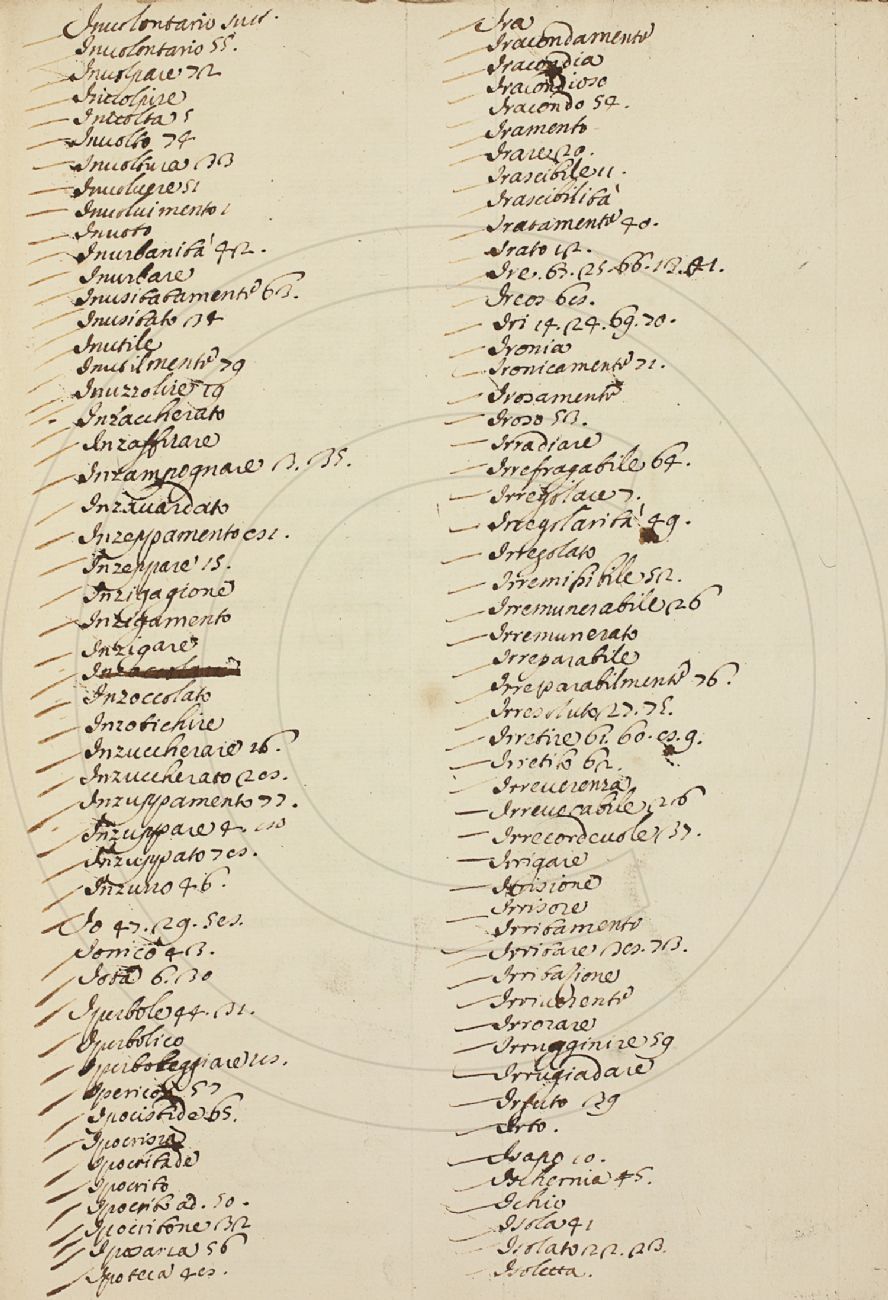 Involontario sust.
Involontario 55.
Involpare 72
Involpire
Involta 5
Involto 74
Involtura 33
Involvere 51
Involvimento 1
Invoto
Inurbanità 42.
Inurbare
Inusitatamente 63.
Inusitato 34
Inutile
Inutilmente 79
Inuzzolire 19
Inzaccherato
Inzaffirare
Inzampognare 3. 35.
Inzavardato
Inzeppamento
Inzeppare 15.
Inzigagione
Inzigamento
Inzigare
Inzoccolato
Inzotichire
Inzuccherare 16.
Inzuccherato
Inzuppamento 77.
Inzuppare 4.
Inzuppato
Inzuno 46.
Io 47. 29.
Ionico 43.
Iota 6. 30
Iperbole 44. 31.
Iperbolico
Iperboleggiare
Iperico 57
Ipocistide 65.
Ipocrisia
Ipocritade
Ipocrito
Ipocrito ad. 50.
Ipocritone 32
Iposarca 56
Ipoteca
Ira
Iracondamente
Iracondia
Iracondioso
Iracondo 54.
Iramento
Irare 20.
Irascibile 11.
Irascibilità
Iratamente 40.
Irato 12.
Ire. 63. 25. 66. 13. 41.
Ireos
Iri 14. 24. 69. 70.
Ironia
Ironicamente 71.
Irosamente
Iroso 53.
Irradiare
Irrefragabile 64.
Irregolare 7.
Irregolarità 49.
Irregolato
Irremisibile 52.
Irremunerabile 26
Irremunerato
Irreparabile
Irreparabilmente 76.
Irresoluto 27. 75.
Irretire 61. 60.
Irretito 62.
Irreverenza
Irrevocabile 26
Irrecordevole 37.
Irrigare
Irrisione
Irrisore
Irritamento
Irritare
Irritazione
Irriverente
Irrorare
Irrugginire 59
Irrugiadare
Irsuto 29
Irto.
Isapo 10.
Ischernia 45.
Ischio
Isola 41
Isolato 22. 23.
Isoletta.